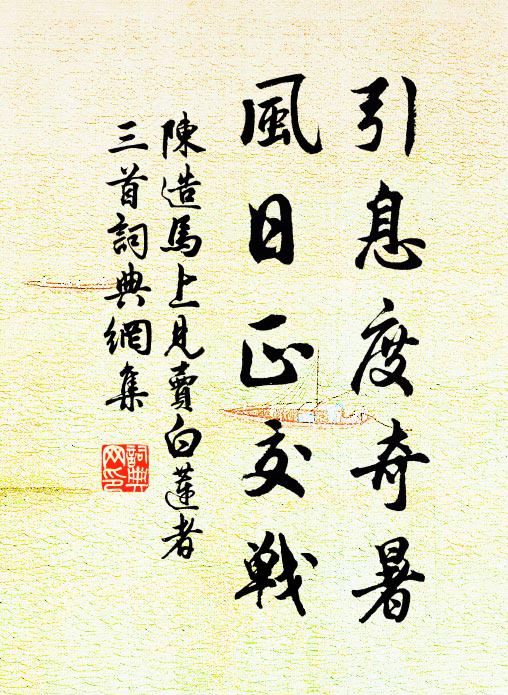 引息度奇暑
風日正交戰
陳造馬上見賣白蓮者
三首詞典網集
詞典
网印